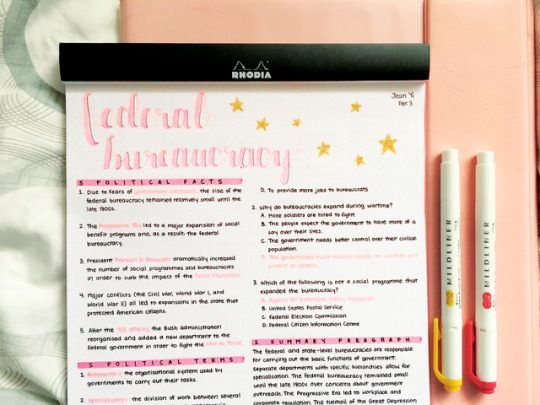 RHODIA
federal
bureaucracy
Jean Yi
Per. 3
5 POLITICAL FACTS
1. Due to fears of government overreach, the size of the
federal bureaucracy remained relatively small until the
late 1800s.
2. The Progressive Era led to a major expansion of social
benefit programs and, as a result the federal
bureaucracy.
3. President Franklin D. Roosevelt dramatically increased
the number of social programmes and bureaucracies
in order to curb the impact of the Great Depression.
4. Major conflicts (the Civil War, World War I, and
World War II) all led to expansions in the state that
protected American citizens.
5. After the 9/11 attacks, the Bush administration
reorganised and added a new department to the
federal government in order to fight the War on Terror.
5 POLITICAL TERMS
1. Bureaucracy: the organisational system used by
governments to carry out their tasks.
2. Specialization: the division of work between several
D. To provide more jobs to bureaucrats
2. Why do bureaucracies expand during wartime?
A. More soldiers are hired to fight
B. The people expect the government to have more of a
say over their lives.
C. The government needs better control over their civilian
population.
D. The government must mobilise quickly for conflict and
3. Which of the following is not a social programme that
expanded the bureaucracy?
A.
B. United States Postal Service
C. Federal Election Commission
D. Federal Citizen Information Centre
1 SUMMARY PARAGRAPH
The federal and state-level bureaucracies are responsible
for carrying out the basic functions of government.
Separate departments with specific hierarchies allow for
specialisation. The federal bureaucracy remained small
until the late 1800s over concerns about government
overreach. The Progressive Era led to workplace and
corporate regulation. The turmoil of the Great Depression
MILDLINER
MILDLINER